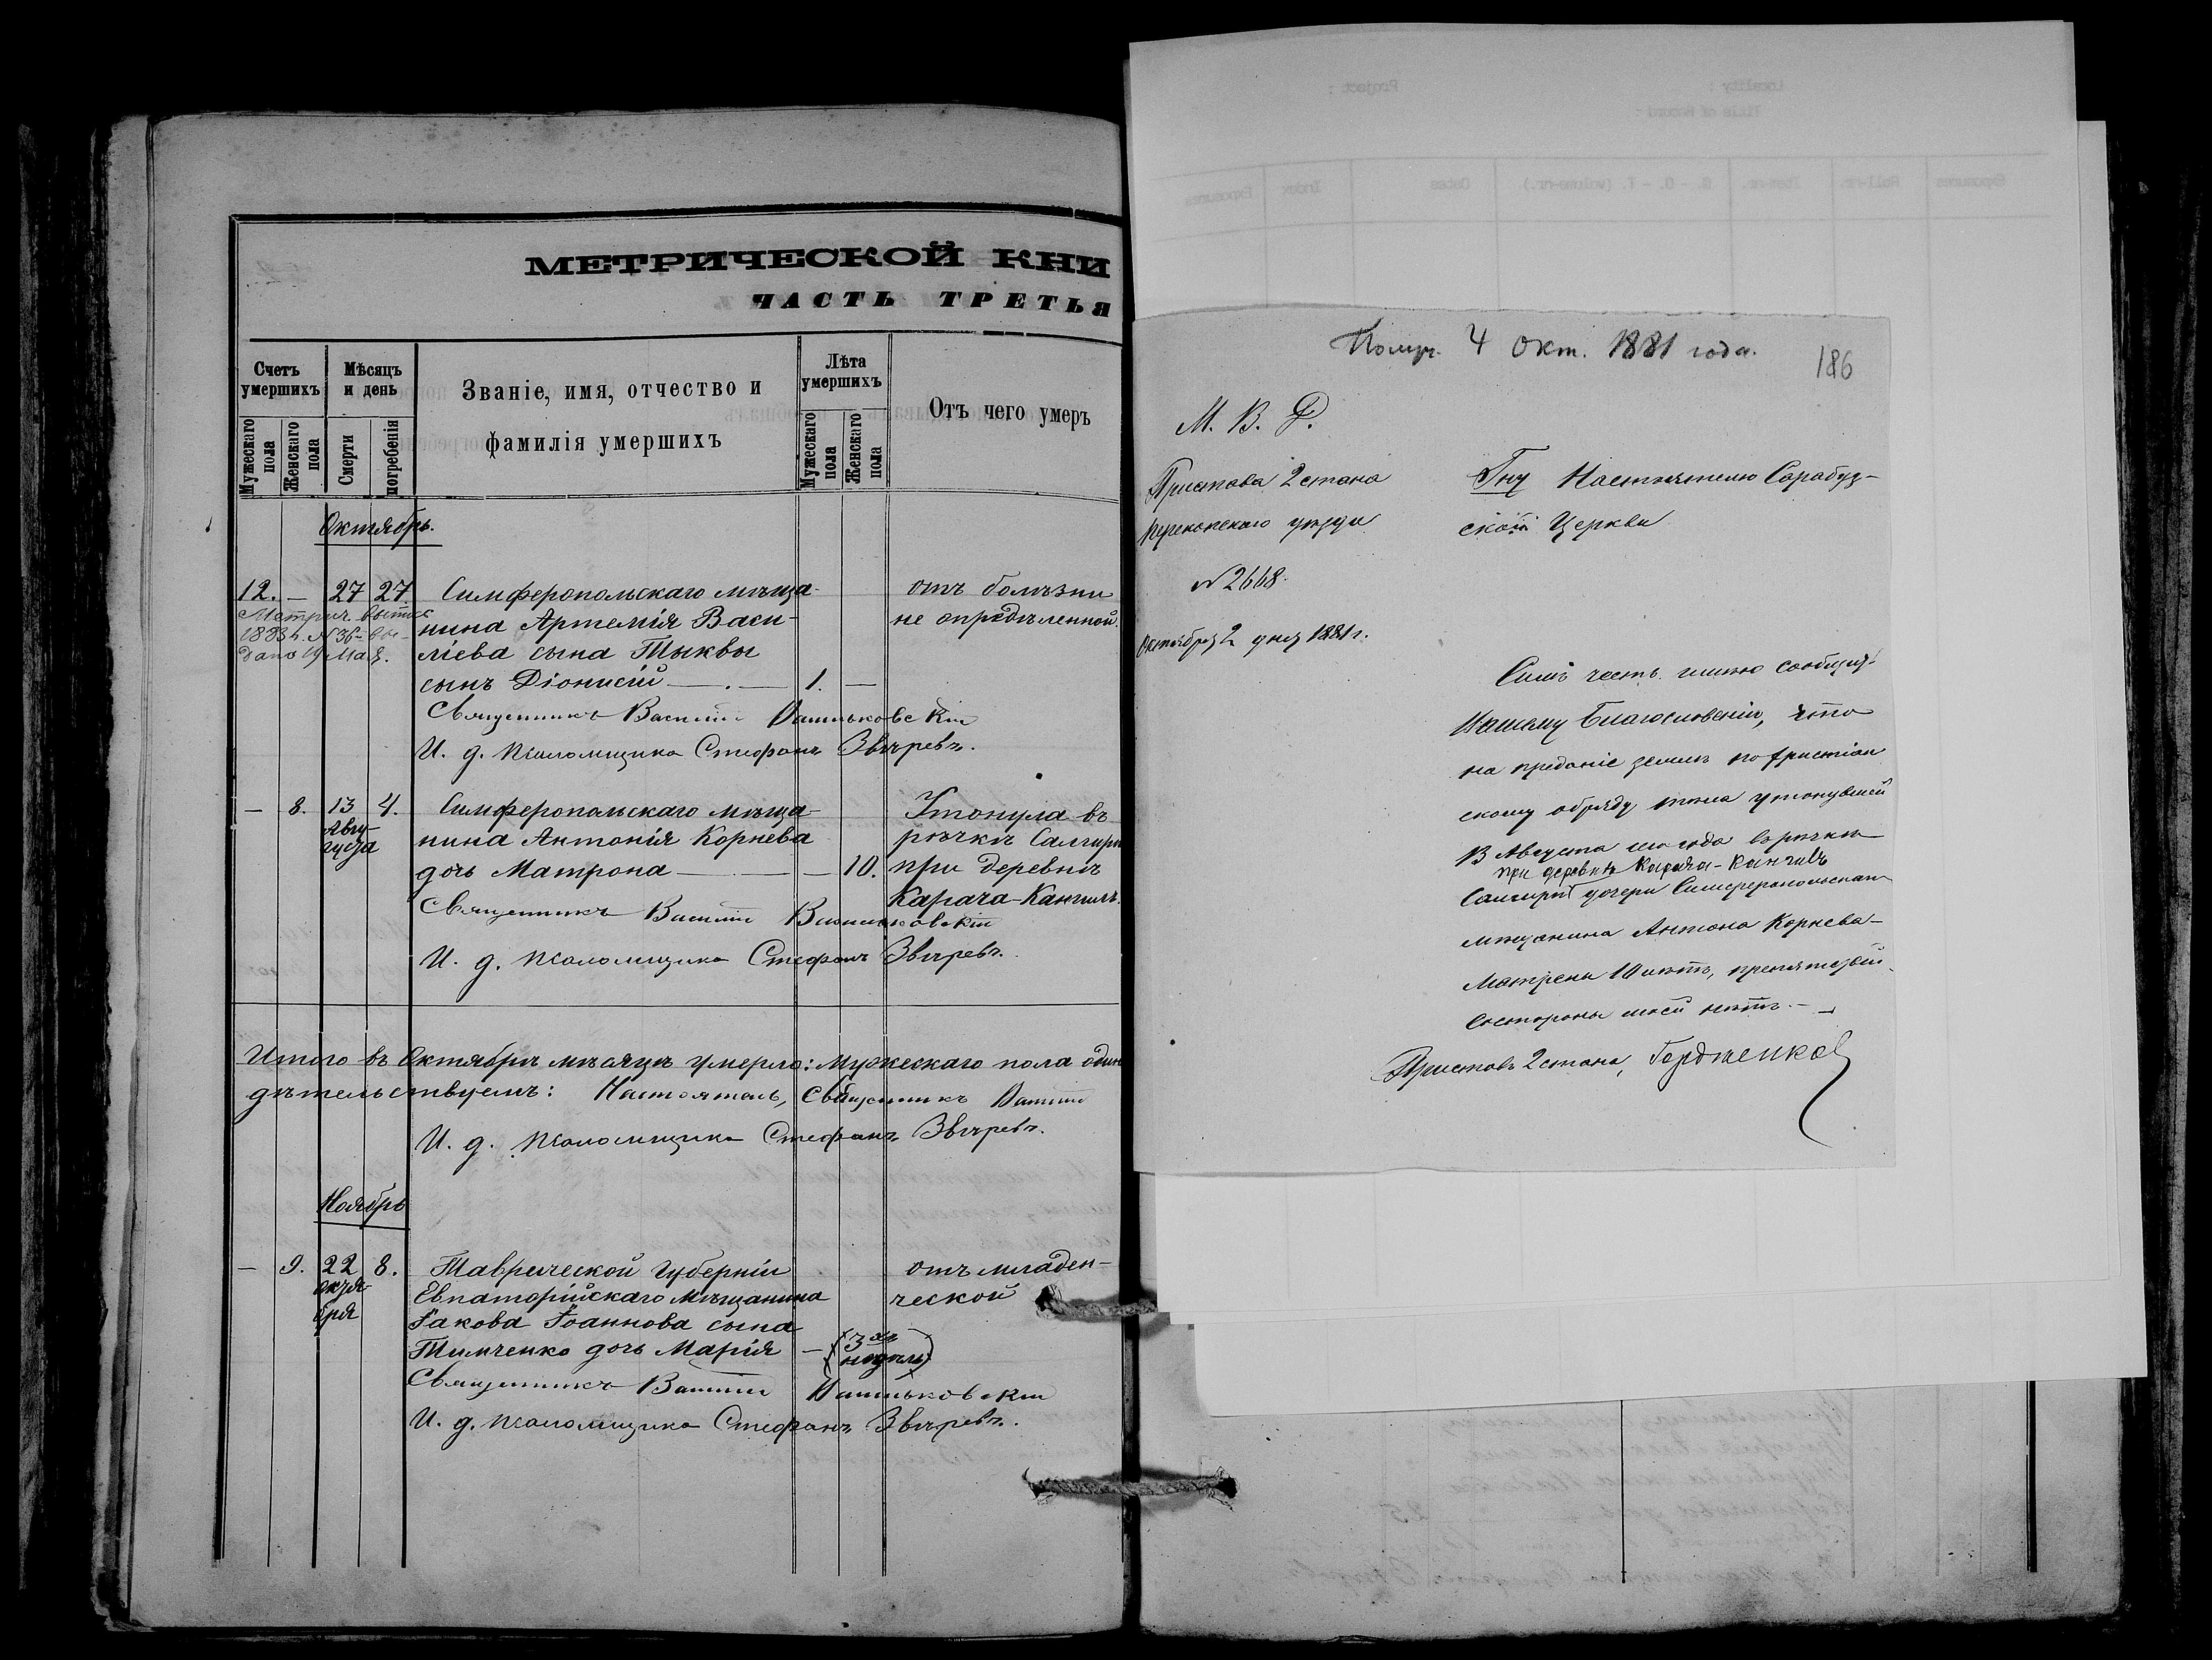 МЕТРИЧЕСКОЙ КНИ
ЧАСТЬ ТРЕТЬЯ
Счетъ умершихъ
Мужескаго пола
Женскаго пола
Мѣсяцъ и день
Смерти
погребенія
Званіе, имя, отчество и
фамилія умершихъ
Лѣта умершихъ
Мужескаго пола
Женскаго пола
Отъ чего умеръ
Октябрь.
12. — 27 27 Симферопольскаго мѣща- отъ болѣзни
нина Артемія Васи- не опредѣленной.
Метрич. выпис
1883 г. № 36
дано 19 Мая.
ліева сына Тыквы
сынъ Діонисій — . — 1. —
Священникъ Василій Вашньковскій
И. д. псаломщика Стефанъ Звѣревъ.
— 8. 13 4. Симферопольскаго мѣща- Утонула въ
Авгу-
ста
нина Антонія Корнева рѣчкѣ Салгирѣ
дочь Матрона — — 10. при деревнѣ
Карача-Кангилъ.
Священникъ Василій
И. д. псаломщика Стефанъ Звѣревъ.
Итого въ Октябрѣ мѣсяцѣ умерло: мужескаго пола один
дѣтельствуемъ: Настоятель, Священникъ Василій
И. д. псаломщика Стефанъ Звѣревъ.
Ноябрь
— 9. 22 8. Таврической губерніи отъ младен-
октя-
бря
Евпаторійскаго мѣщанина ческой
Іакова Іоаннова сына
Тимченко дочь Марія — (3 хъ
недѣль)
Священникъ Василій
И. д. псаломщика Стефанъ Звѣревъ.
Получ. 4 Окт. 1881 года.
186
М. В. Д.
Пристава 2 стана
Перекопскаго уѣзда
№ 2668.
Октября 2 дня 1881 г.
Гну Настоятелю Сарабуз-
ской Церкви
Симъ честь имѣю сообщить
Вашему Благословенію, что
на преданіе землѣ по христіан
скому обряду тѣла утонувшей
13 Августа сего года въ рѣчкѣ
при деревнѣ Карача-Кангилъ
Салгирѣ дочери Симферопольскаго
мѣщанина Антона Корнева-
Матрены 10 лѣтъ, препятствій
со стороны моей нѣтъ. —
Приставъ 2 стана, Гордженков